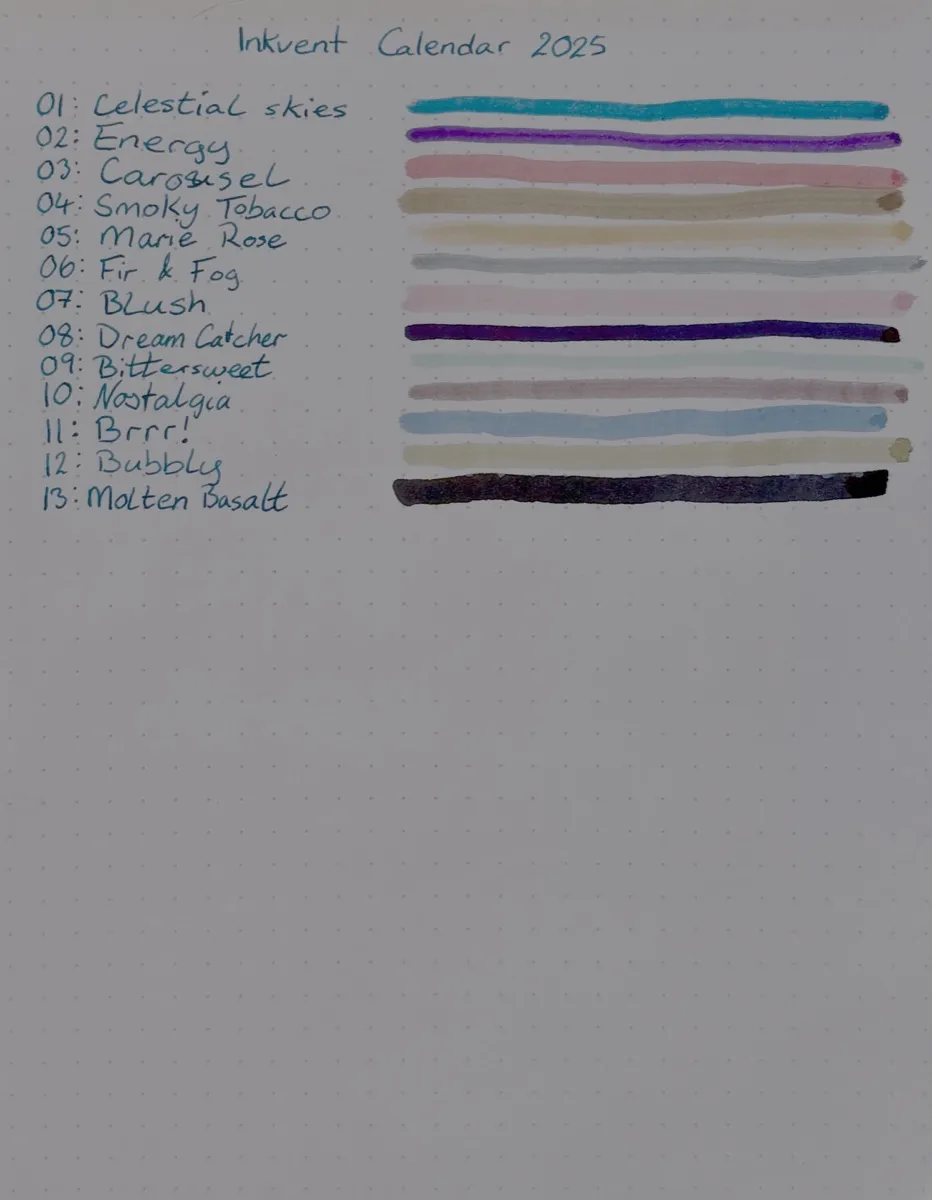 Inkvent Calendar 2025
01: Celestial skies
02: Energy
03: Carousel
04: Smoky Tobacco
05: Marie Rose
06: Fir & Fog
07: Blush
08: Dream Catcher
09: Bittersweet
10: Nostalgia
11: Brrr!
12: Bubbly
13: Molten Basalt